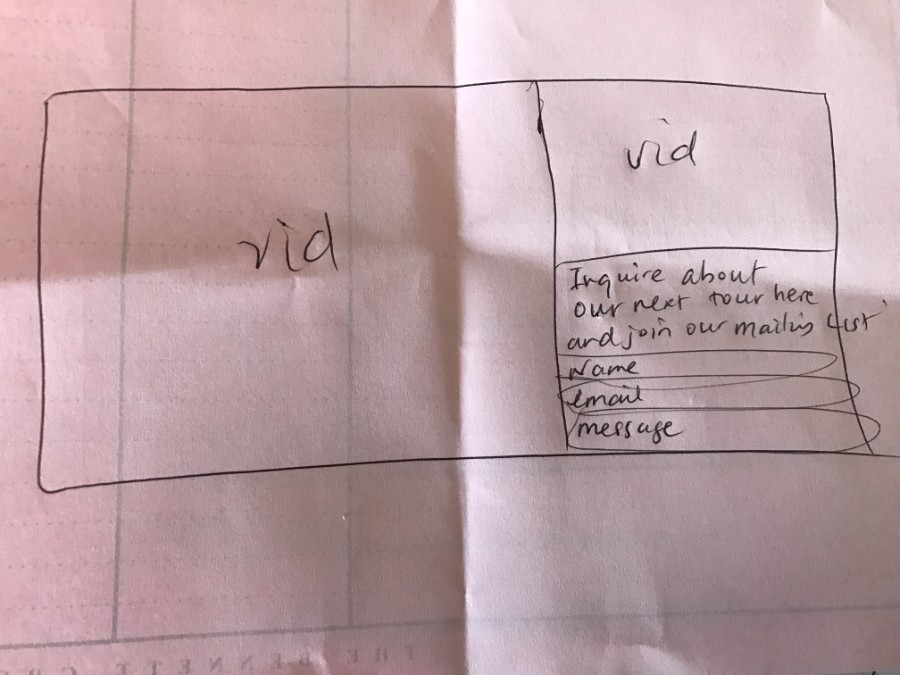 vid
vid
Inquire about
our next tour here
and join our mailing List
Name
email
message